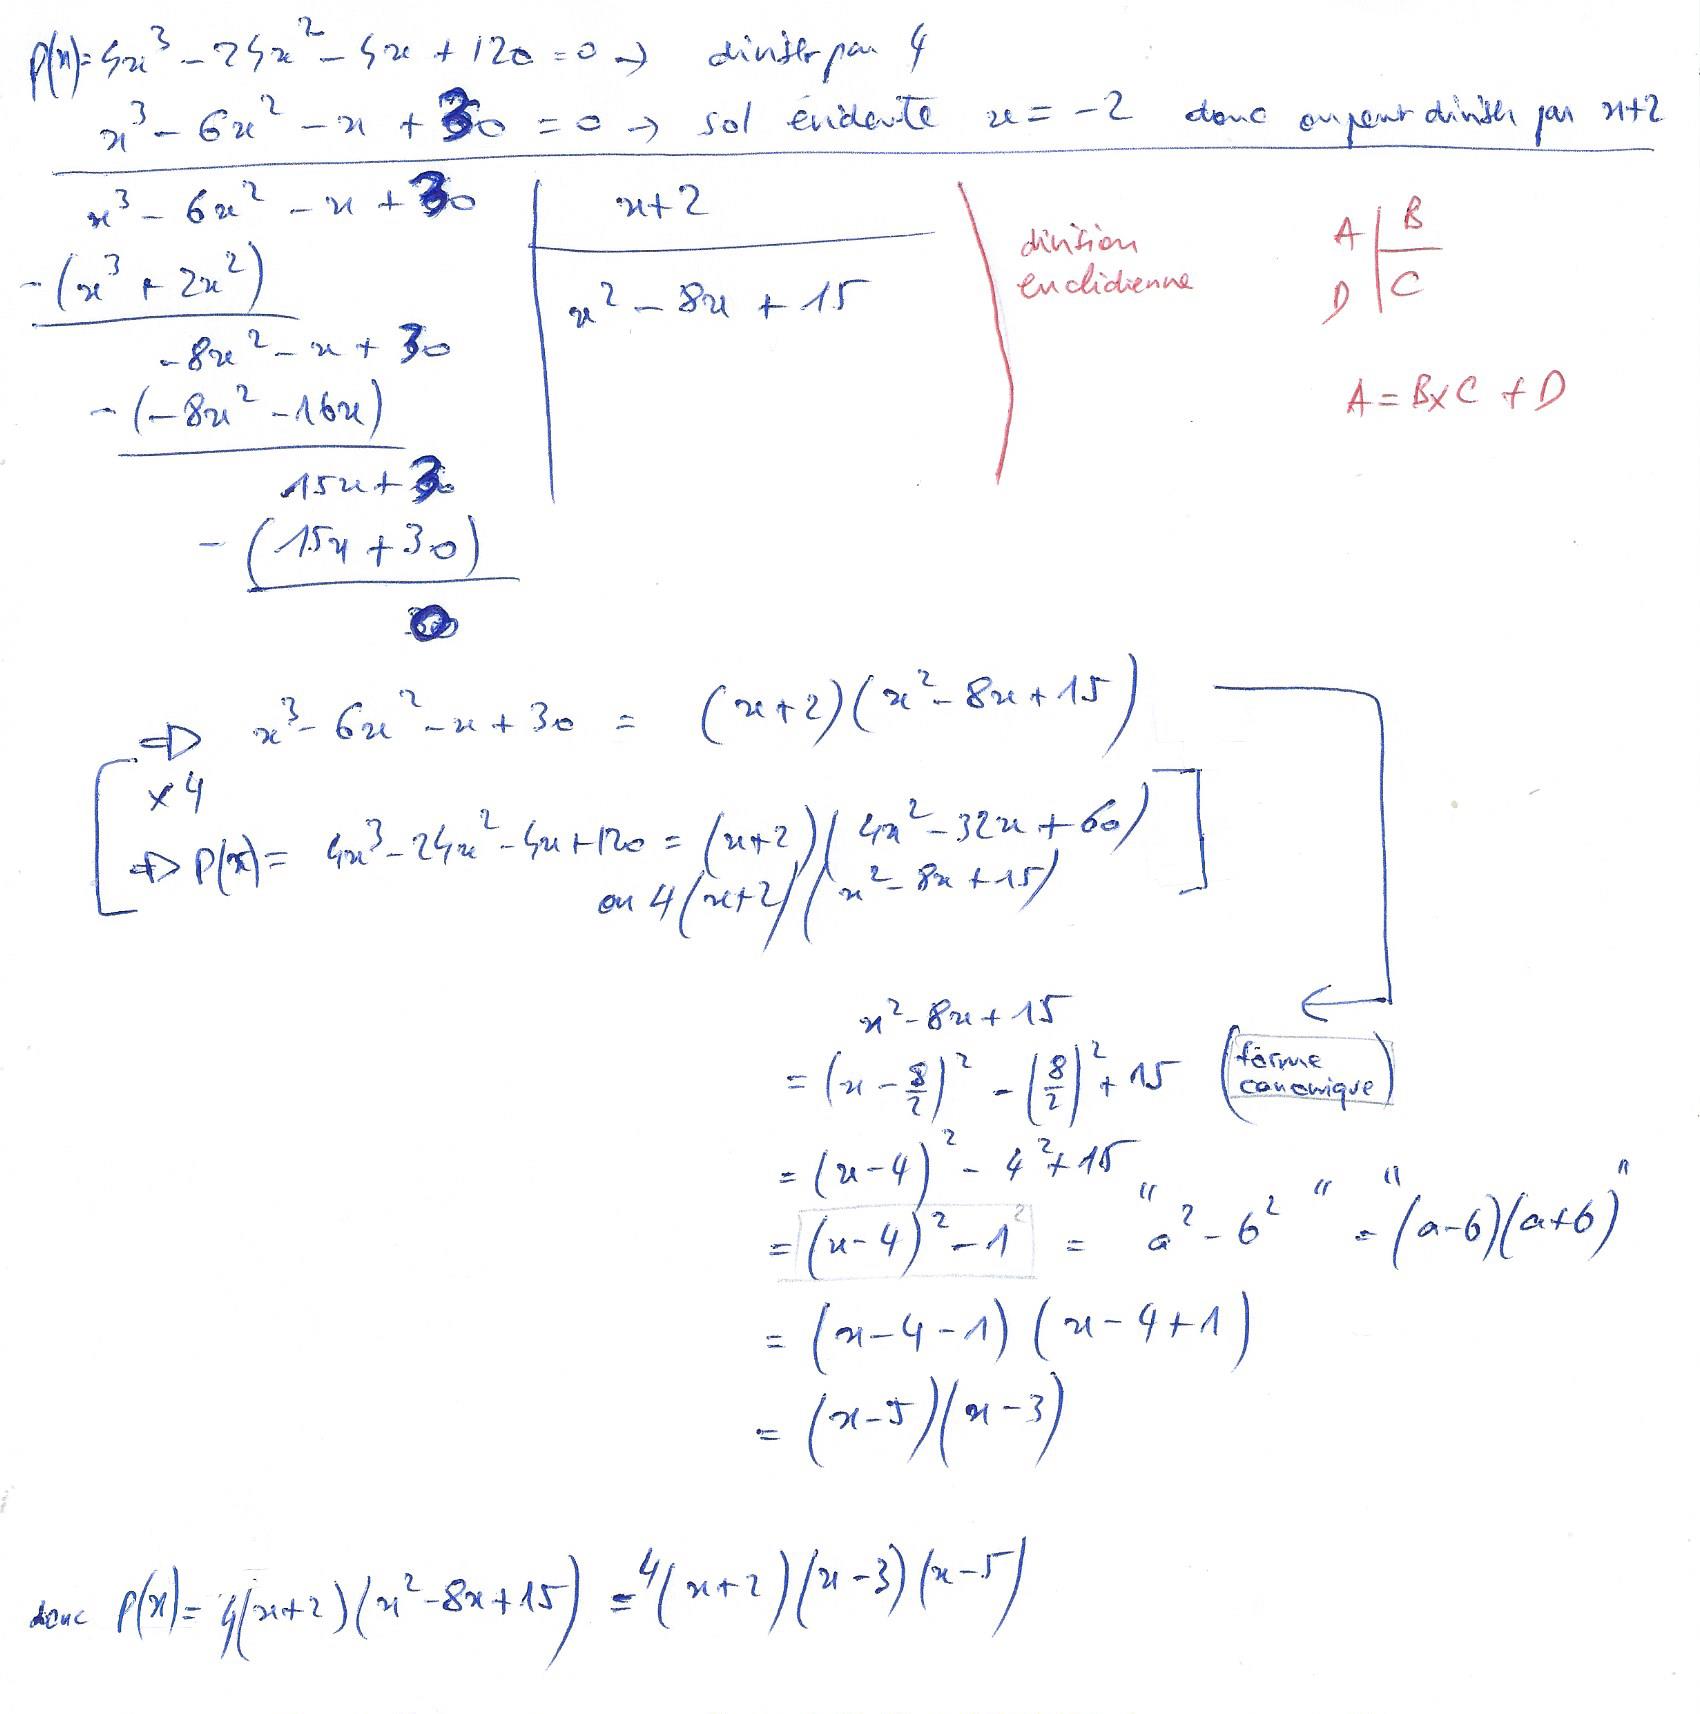 P(x)=4x³-24x²-4x+120=0→ diviser par 4
x³-6x²-x+30=0→ sol évidente x=-2 donc on peut diviser par x+2
x³-6x²-x+30 x+2
-(x³+2x²) x²-8x+15
-8x²-x+30
-(-8x²-16x)
15x+30
-(15x+30)
0
division
euclidienne
A B
D C
A=B×C+D
⇒ x³-6x²-x+30 = (x+2)(x²-8x+15)
×4
⇒P(x)= 4x³-24x²-4x+120=(x+2)(4x²-32x+60)
ou 4(x+2)(x²-8x+15)
x²-8x+15
=(x-8/2)²-(8/2)²+15 (forme
canonique)
=(x-4)²-4²+15
=(x-4)²-1² = "a²-b²" = "(a-b)(a+b)"
=(x-4-1)(x-4+1)
=(x-5)(x-3)
donc P(x)=4(x+2)(x²-8x+15)=4(x+2)(x-3)(x-5)